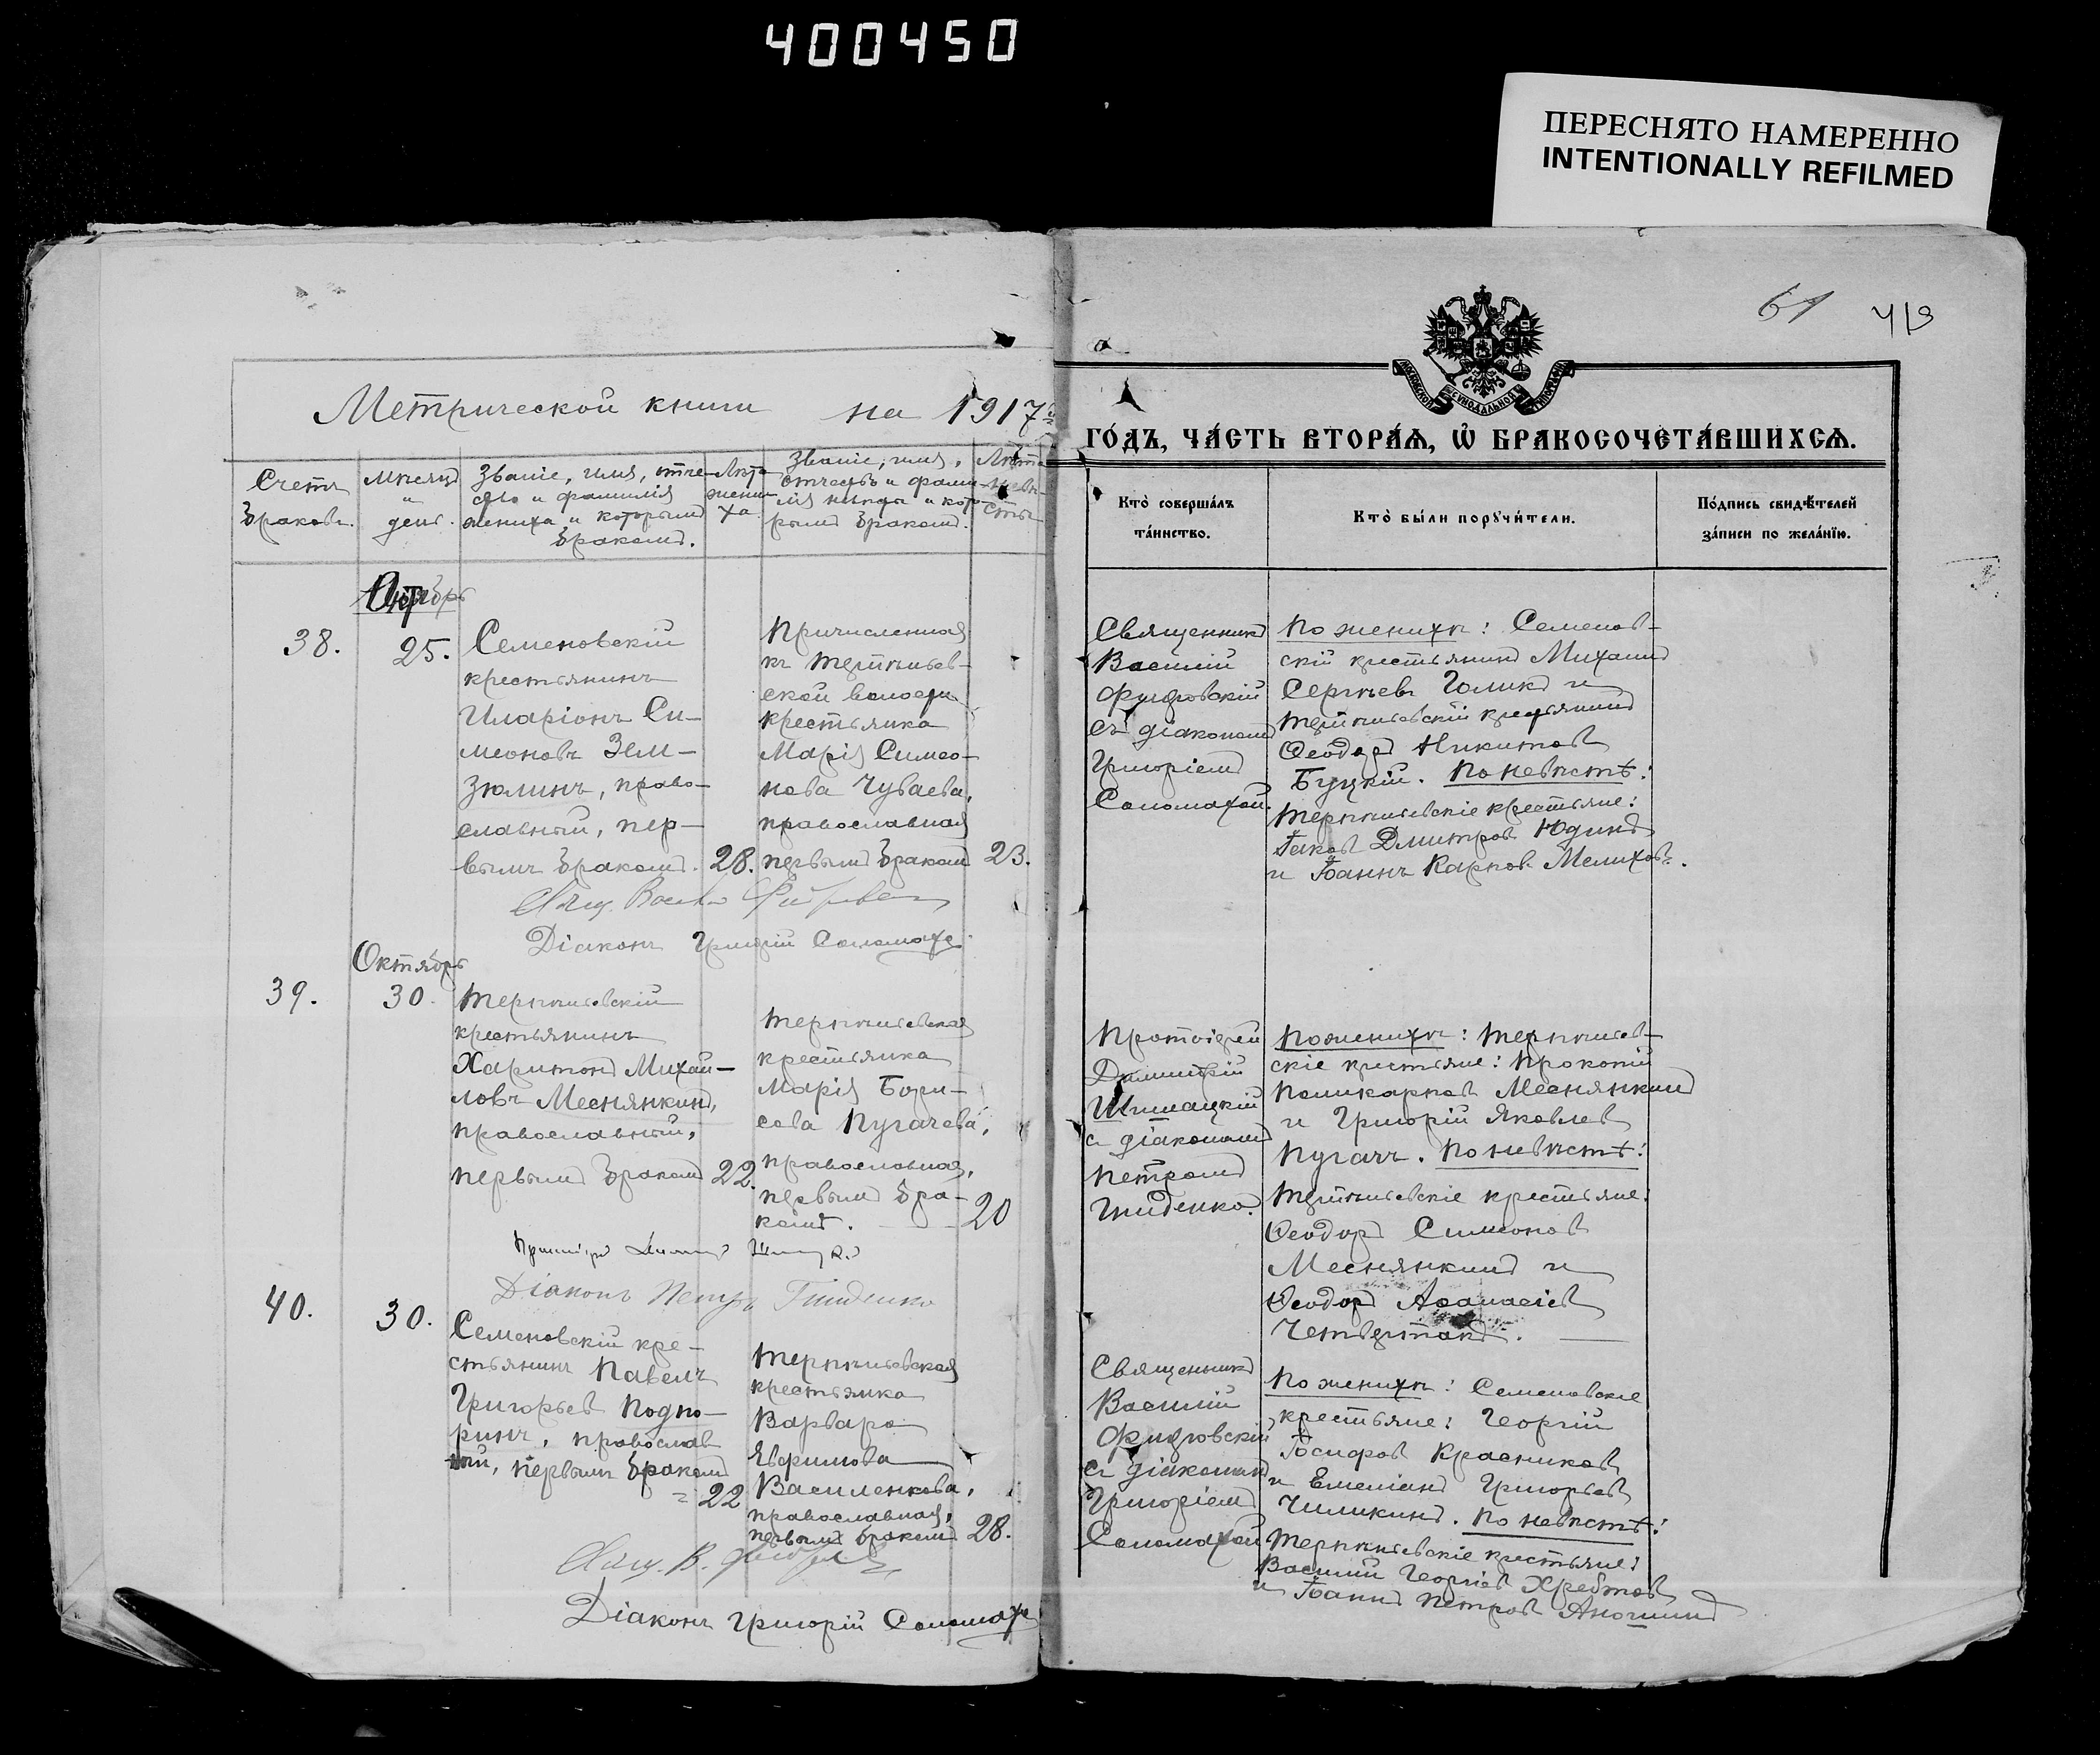 400450
ПЕРЕСНЯТО НАМЕРЕННО
INTENTIONALLY REFILMED
61 419
Метрической книги на 1917й
го́дъ, ча́сть втора́ѧ, ѡ҆ бракосочета́вшихсѧ.
Счетъ
браковъ.
Мѣсяцъ
и
день.
Званіе, имя, отче-
ство и фамилія
жениха и которымъ
бракомъ.
Лѣта
жени-
ха.
Званіе, имя,
отчество и фами-
лія невѣсты и кото-
рымъ бракомъ.
Лѣта
невѣ-
сты
Кто̀ соверша́лъ
та́инство.
Кто̀ бы́ли порꙋчи́тели.
По́дпись свидѣ́телей
за́писи по жела́нїю.
38.
25.
Семеновскій
крестьянинъ
Иларіонъ Си-
меоновъ Зем-
зюлинъ, право-
славный, пер-
вымъ бракомъ.
28.
Причисленная
къ Терпѣньев-
ской волости
крестьянка
Марія Симео-
нова Чуваева,
православная
первымъ бракомъ
23.
Священникъ
Василій
съ діакономъ
Григоріемъ
Соломахой.
По женихѣ: Семенов-
скій крестьянинъ Михаилъ
Сергѣевъ Голикъ и
Терпѣньевскій крестьянинъ
Ѳеодоръ Никитовъ
Буцкій. По невѣстѣ:
Терпѣньевскіе крестьяне:
Іаковъ Дмитровъ Юдинъ
и Іоаннъ Карповъ Мелиховъ.
Свящ.
Діаконъ Григорій Соломаха
Октябрь
39.
30.
Терпѣньевскій
крестьянинъ
Харитонъ Михаи-
ловъ Меснянкинъ,
православный,
первымъ бракомъ
22.
Терпѣньевская
крестьянка
Марія Бори-
сова Пугачева,
православная,
первымъ бра-
комъ.
20
Протоіерей
Димитрій
Шишацкій
съ діакономъ
Петромъ
Гниденко.
По женихѣ: Терпѣньев-
скіе крестьяне: Прокопій
Поликарповъ Меснянкинъ
и Григорій Яковлевъ
Пугачъ. По невѣстѣ:
Терпѣньевскіе крестьяне:
Ѳеодоръ Симеоновъ
Меснянкинъ и
Ѳеодоръ Аѳанасіевъ
Четвертакъ.
Діаконъ Петръ Гниденко
40.
30.
Семеновскій кре-
стьянинъ Павелъ
Григорьевъ Подпо-
ринъ, православ
ный, первымъ бракомъ
22
Терпѣньевская
крестьянка
Варвара
Евфимова
Василенкова,
православная,
первымъ бракомъ
28.
Священникъ
Василій
съ діакономъ
Григоріемъ
Соломахой
По женихѣ: Семеновскіе
крестьяне: Георгій
Іосифовъ Красниковъ
и Емеліанъ Григорьевъ
Чиликинъ. По невѣстѣ:
Терпѣньевскіе крестьяне:
Василій Георгіевъ Хребтовъ
и Іоаннъ Петровъ Аношинъ
Свящ. В.
Діаконъ Григорій Соломаха